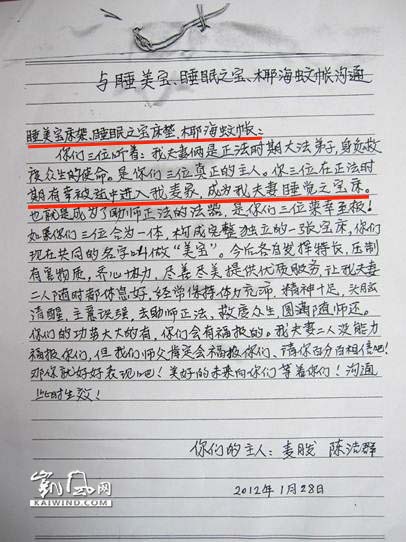 与睡美宝、睡眠之宝、椰海蚊帐沟通
睡美宝床架、睡眠之宝床垫、椰海蚊帐:
你们三位听着:我夫妻俩是正法时期大法弟子,身负救
救众生的使命。是你们三位真正的主人。你三位在正法时
期有幸被选中进入我麦家,成为我夫妻睡觉之宝床。
也就是成为了助师正法的法器,是你们三位荣幸至极!
如果你们三位合为一体,构成完整独立的一张宝床,你们
现在共同的名字叫做“美宝”。今后各自发挥特长,压制
有害物质,齐心协力,尽善尽美提供优质服务,让我夫妻
二人随时都休息好,经常保持体力充沛,精神十足,头脑
清醒,主意识强,去助师正法,救度众生圆满随师还。
你们的功劳大大的有,你们会有福报的。我夫妻二人没能力
福报你们,但我们师父肯定会福报你们、请你百分百相信吧!
那你就好好表现吧!美好的未来向你们等着你们!沟通
此时生效!
你们的主人:麦 陈洁群
2012年1月28日
凯风网
KAIWIND.COM